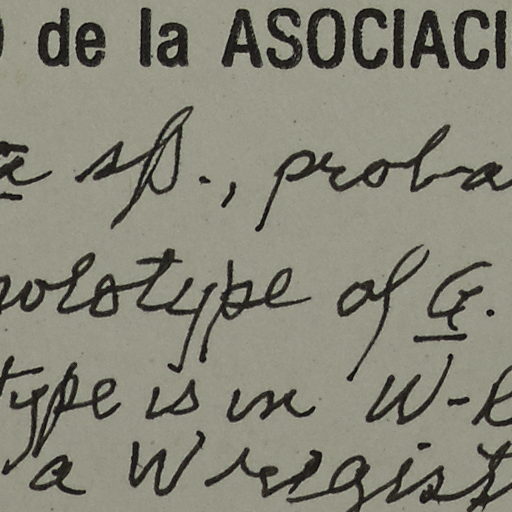 de la ASOCIACI
a sp., proba
olotype of G.
type is in W-
a W regist